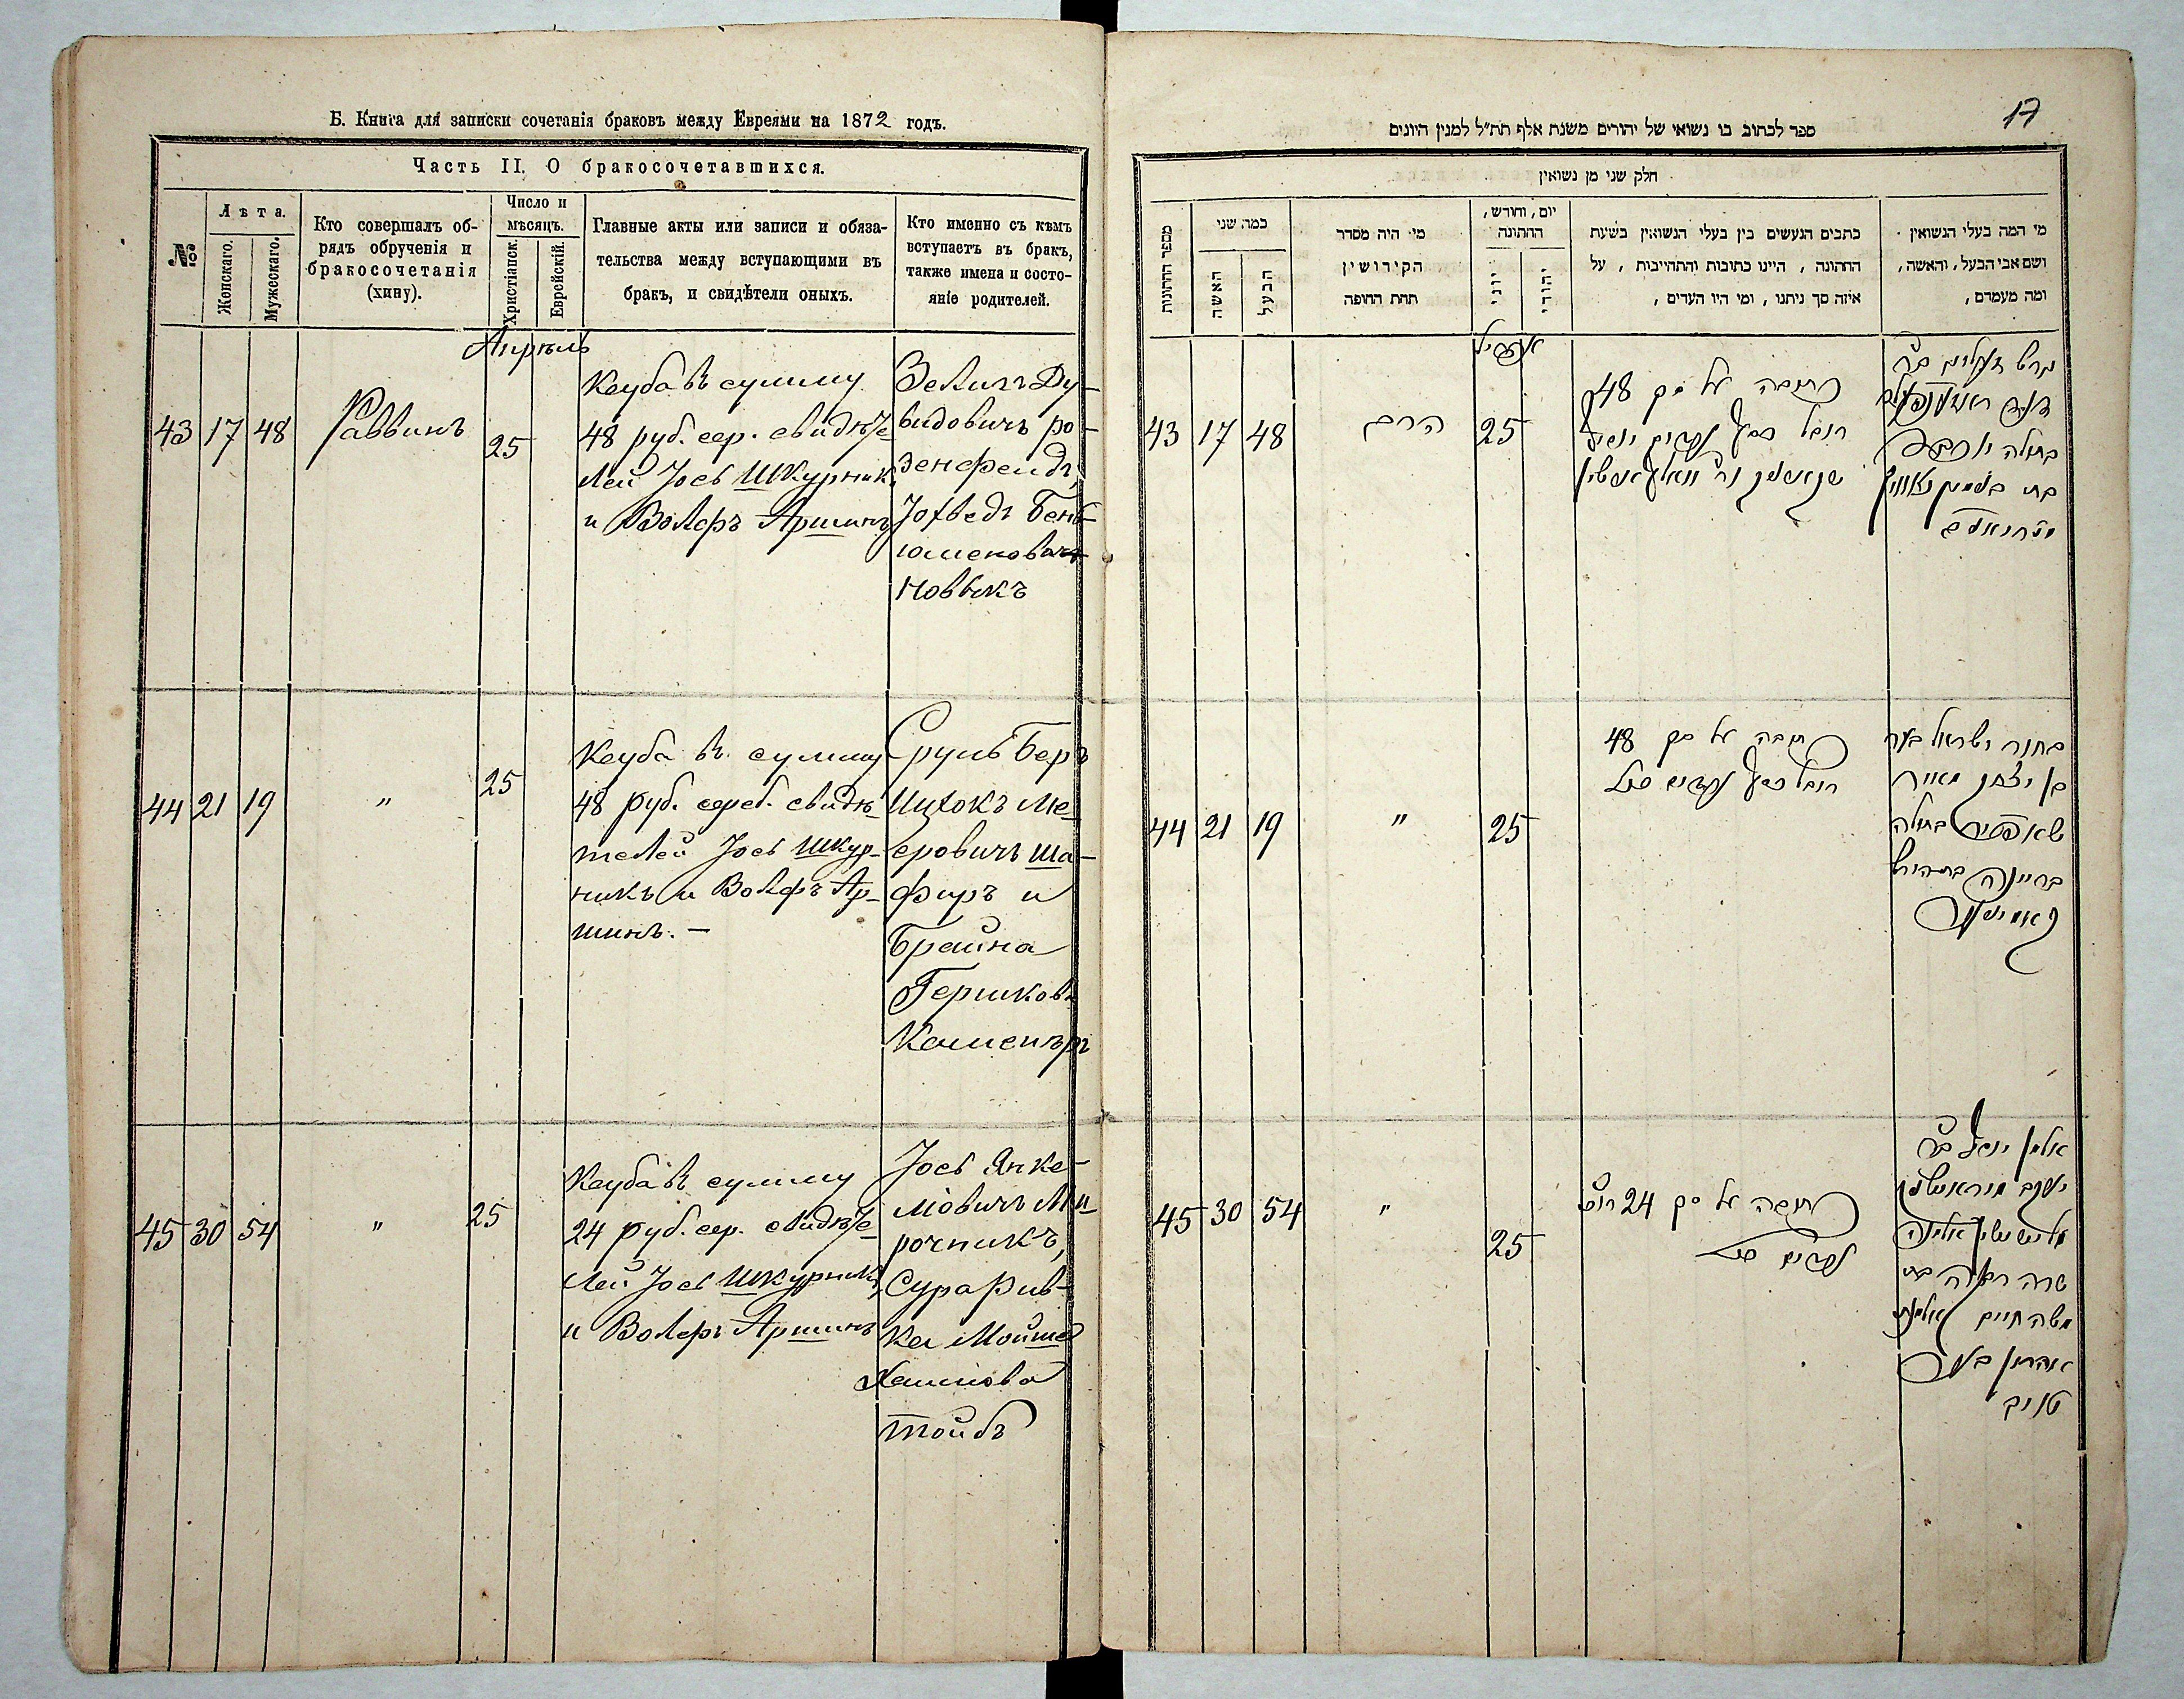 Б. Книга для записки сочетанія браковъ между Евреями на 1872 годъ.
Часть II. О бракосочетавшихся.
№
Лѣта.
Женскаго.
Мужескаго.
Кто совершалъ об-
рядъ обрученія и
бракосочетанія
(хину).
Число и
мѣсяцъ.
Христіанск.
Еврейскій.
Главные акты или записи и обяза-
тельства между вступающими въ
бракъ, и свидѣтели оныхъ.
Кто именно съ кѣмъ
вступаетъ въ бракъ,
также имена и состо-
яніе родителей.
Апрель
43 17 48
Раввинъ
25
Кеуба въ сумму
48 руб. сер. свидѣте
лей Іось Шкурник
и Волфъ Аршинъ
Зелигъ Ду-
видовичъ ро-
зенфельдъ,
Іохведъ Бень-
Новикъ
44 21 19
"
25
Кеуба въ сумму
48 руб. сереб. свидѣ
телей Іось Шкур-
никъ и Волфъ Ар-
шинъ. -
Сруль Беръ
Ицхокъ Ме
еровичъ Ша-
фиръ и
Брайна
Гершкова
45 30 54
"
25
Кеуба въ сумму
24 руб. сер. свидѣте
лей Іось Шкурникъ
и Волфъ Аршинъ
Іось Янке-
ловичъ Ми
рочникъ,
Сура Рив-
ка Мойше
Хаимова
Тойбъ
17
ספר לכתוב בו נשואי של יהודים משנת אלף תת״ל למנין היונים
חלק שני מן נשואין
מספר החתונות
כמה שני
האשה
הבעל
מי היה מסדר
הקידושין
תחת החופה
יום, וחודש,
החתונה
יוני
יהודי
כתבים הנעשים בין בעלי הנשואין בשעת
החתונה, היינו כתובות והתחייבות, על
איזה סך ניתנו, ומי היו העדים,
מי המה בעלי הנשואין
ושם אבי הבעל, והאשה,
ומה מעמדם,
אפריל
43 17 48
הרב
25
כתובה על סך 48
רובל כסף
בתולה יוכבד
44 21 19
"
25
כתובה על סך 48
רובל כסף
בחור ישראל בער
בן יצחק מאיר
שאפיר בתולה
בריינה
45 30 54
"
25
כתובה על סך 24
אלמן יוסף בר
יעקב
שרה רבקה בת
משה חיים אלמנת
אהרון בער
טויב